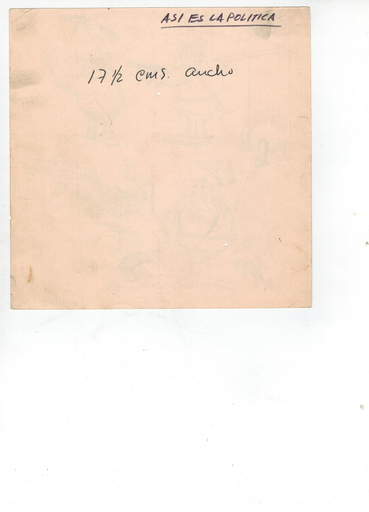 ASI ES LA POLITICA
17 1/2 cms. ancho